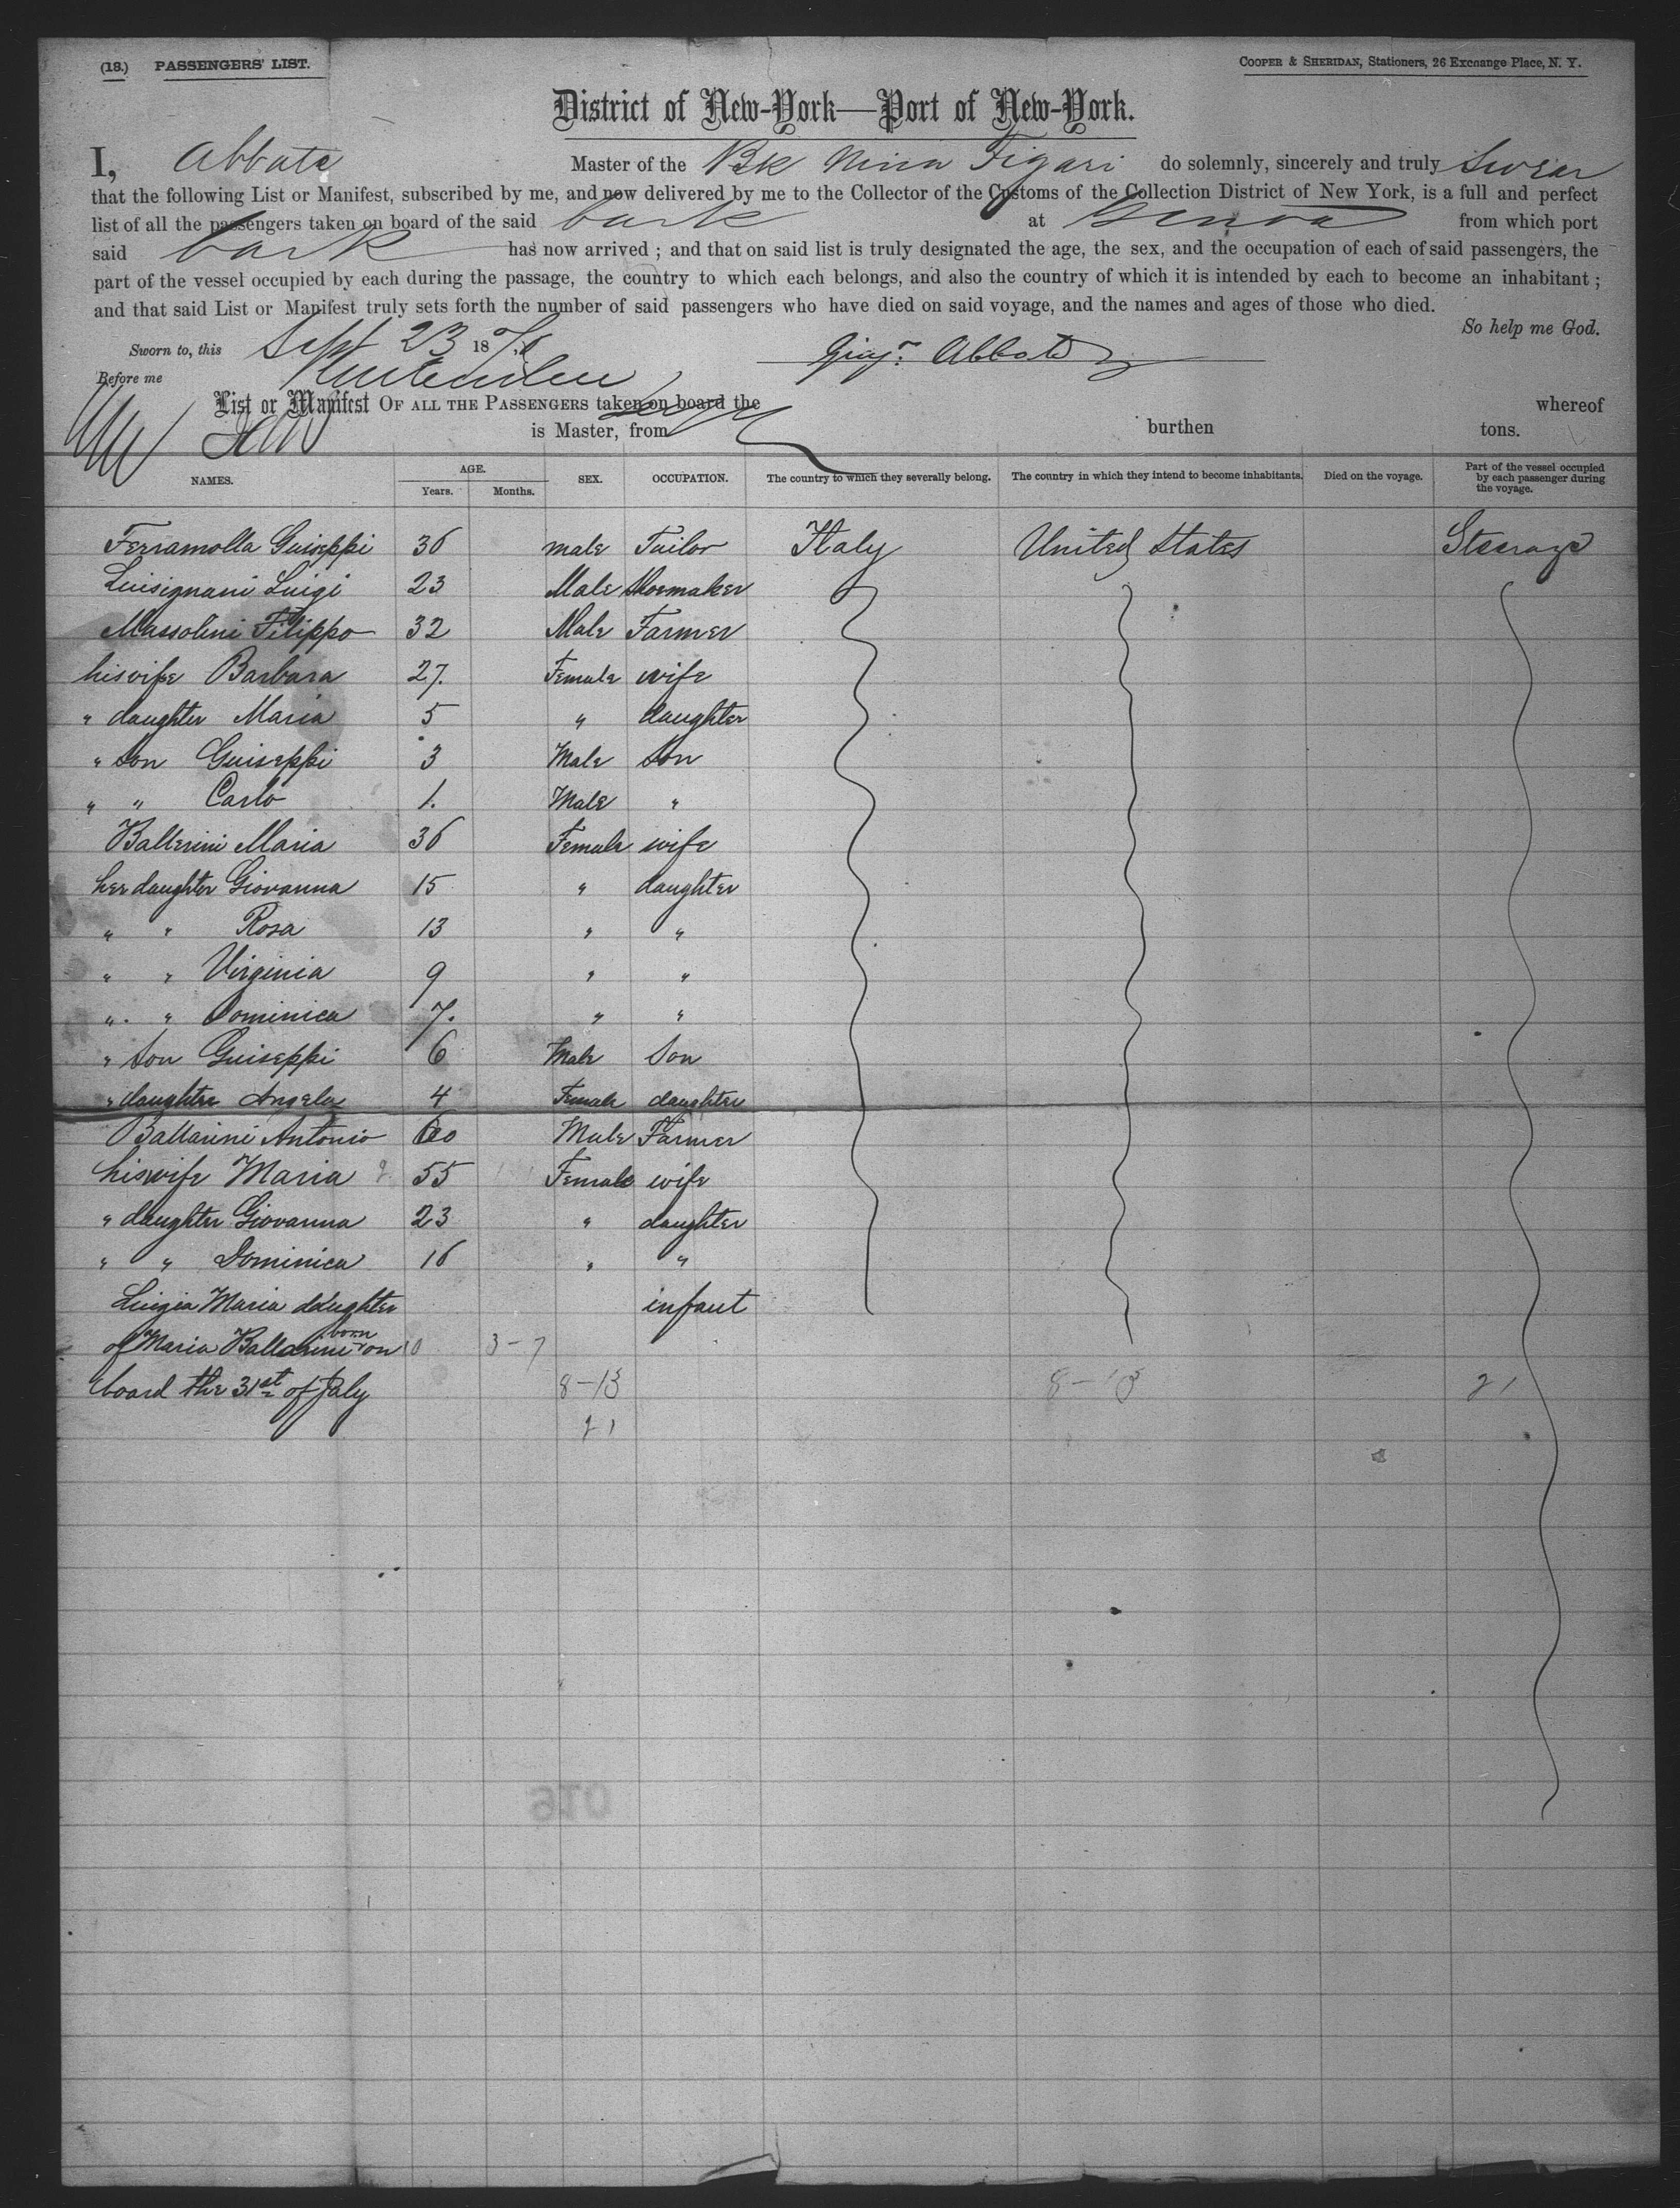 (18.) PASSENGERS' LIST.
COOPER & SHERIDAN, Stationers, 26 Exchange Place, N. Y.
District of New-York—Port of New-York.
I, Abbate Master of the Bk Nina Figari do solemnly, sincerely and truly Swear
that the following List or Manifest, subscribed by me, and now delivered by me to the Collector of the Customs of the Collection District of New York, is a full and perfect
list of all the passengers taken on board of the said bark at Genoa from which port
said bark has now arrived ; and that on said list is truly designated the age, the sex, and the occupation of each of said passengers, the
part of the vessel occupied by each during the passage, the country to which each belongs, and also the country of which it is intended by each to become an inhabitant ;
and that said List or Manifest truly sets forth the number of said passengers who have died on said voyage, and the names and ages of those who died.
So help me God.
Sworn to, this Sept 23 18
Abbate
Before me
List or Manifest OF ALL THE PASSENGERS taken on board the whereof
is Master, from burthen tons.
NAMES. AGE. Years. Months. SEX. OCCUPATION. The country to which they severally belong. The country in which they intend to become inhabitants. Died on the voyage. Part of the vessel occupied by each passenger during the voyage.
Ferramolla Guiseppi 36 male Tailor Italy United States Steerage
Luisignani Luigi 23 Male Shoemaker
Massolini Filippo 32 Male Farmer
his wife Barbara 27. Female wife
" daughter Maria 5 " daughter
" son Guiseppi 3 Male son
" " Carlo 1. Male "
Ballerini Maria 36 Female wife
her daughter Giovanna 15 " daughter
" " Rosa 13 " "
" " Virginia 9 " "
" " Dominica 7. " "
" son Guiseppi 6 Male Son
" daughter Angela 4 Female daughter
Ballarini Antonio 60 Male Farmer
his wife Maria 55 Female wife
" daughter Giovanna 23 " daughter
" " Dominica 16 " "
Luigia Maria daughter infant
of Maria Ballarini born on 3-7
board the 31st of July 8-13 8-13 21
21